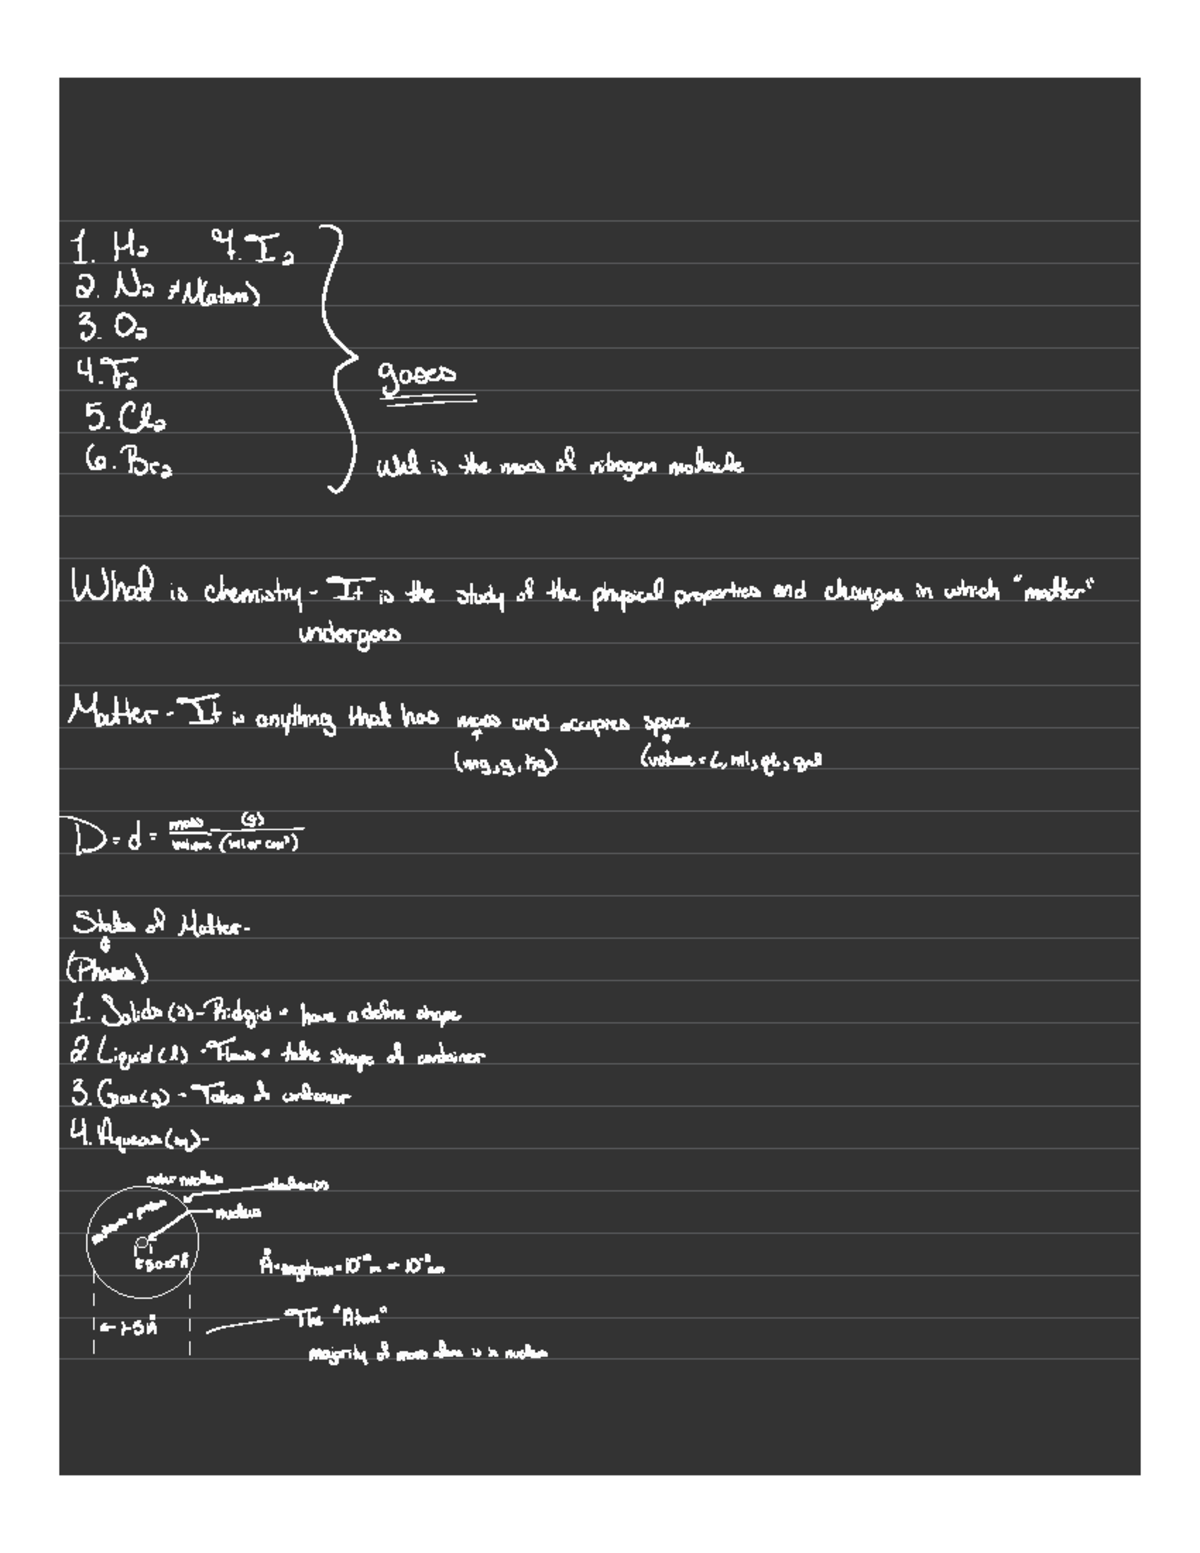 1. H2 7. I2
2. N2 ≠ N(atom)
3. O2
4. F2
gases
5. Cl2
6. Br2
What is the mass of nitrogen molecule
What is chemistry - It is the study of the physical properties and changes in which "matter"
undergoes
Matter - It is anything that has mass and occupies space
(mg, g, kg) (volume = L, ml, qt, gal
D = d = mass (g) / volume (ml or cm³)
States of Matter-
(Phases)
1. Solids (s) - Ridgid + have a define shape
2. Liquid (l) - Flows + take shape of container
3. Gas (g) - Takes of container
4. Aqueous (aq)-
outer nucleus electrons
neutrons + proton nucleus
Å = angstrom = 10⁻¹⁰ m = 10⁻⁸ cm
← 1-5 Å The "Atom"
majority of mass is in nucleus